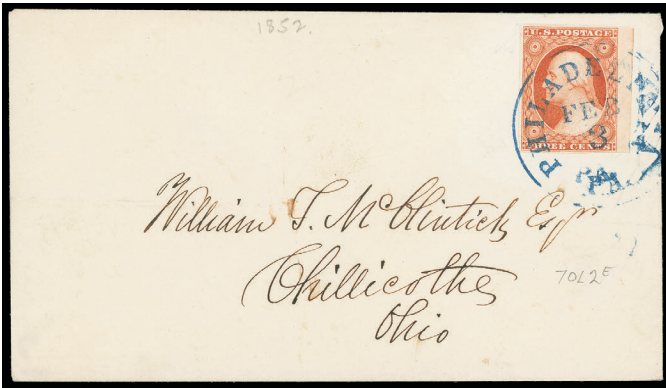 1852.
U.S. POSTAGE
THREE CENTS
PHILADELPHIA
FEB
3
PA.
William T. McClintick Esqr
Chillicothe
Ohio
70L2E